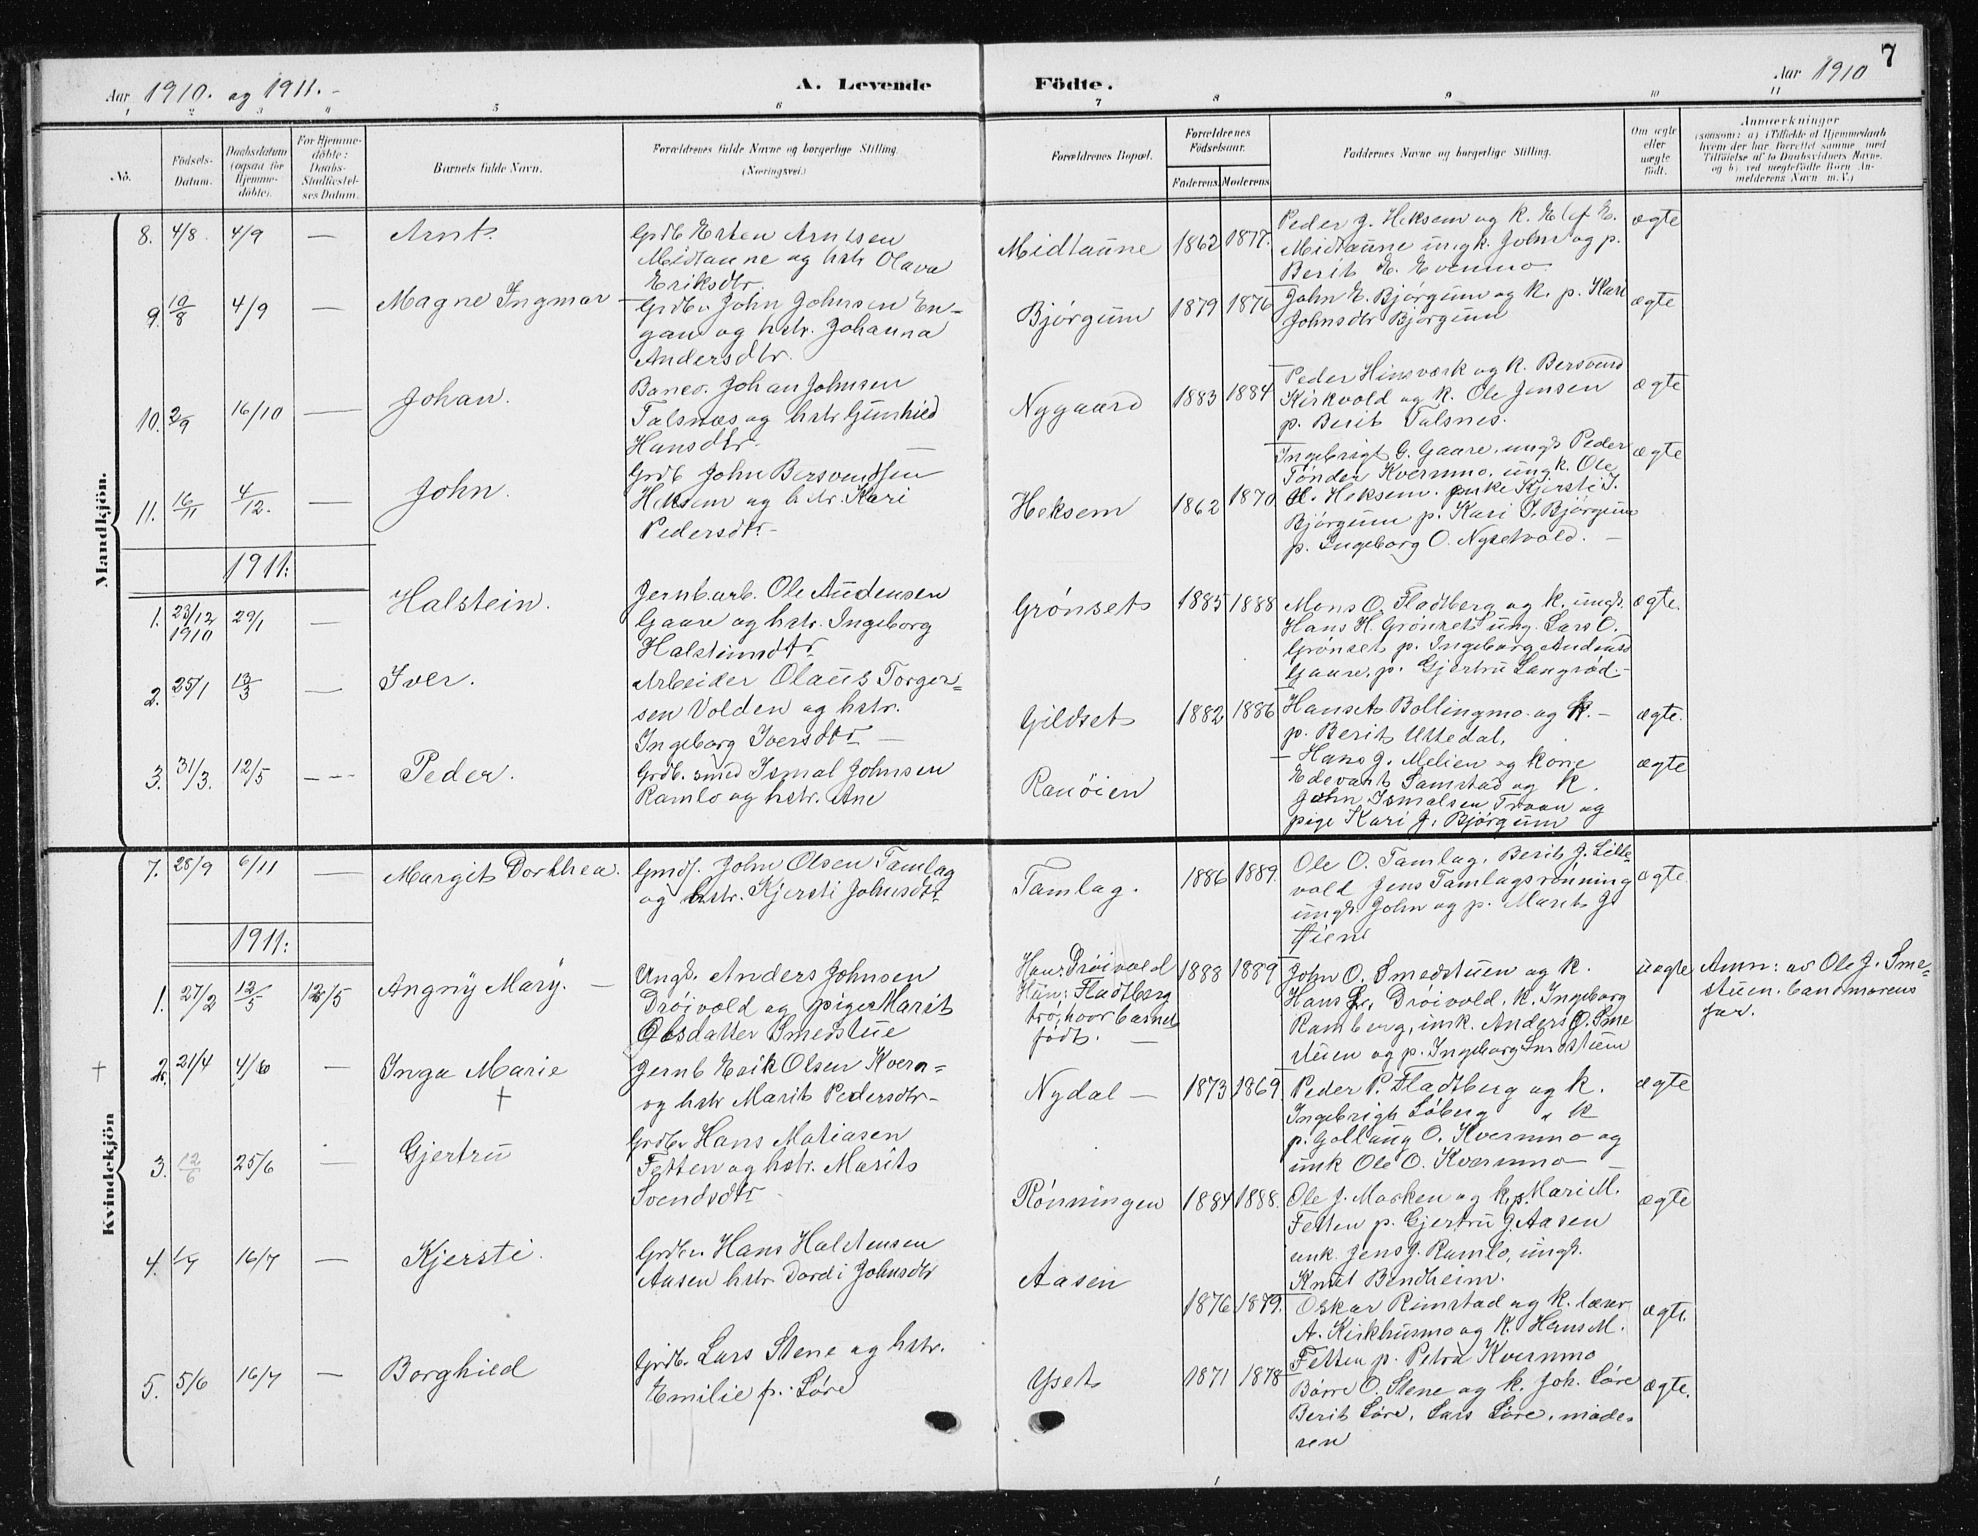 7
Aar 1910. og 1911.-
A. Levende
Födte.
Aar 1910
1 2 3 4 5 6 7 8 9 10 11
No.
Födsels-
Datum.
Daabsdatum
(ogsaa för
Hjemme-
döbte).
For Hjemme-
döbte:
Daabs-
Stadfæstel-
ses Datum.
Barnets fulde Navn.
Forældrenes fulde Navne og borgerlige Stilling.
(Næringsvei.)
Forældrenes Bopæl.
Forældrenes
Födselsaar.
Faderens Moderens
Faddernes Navne og borgerlige Stilling.
Om ægte
eller
uægte
födt.
Anmærkninger
(saasom: a) i Tilfælde af Hjemmedaab
hvem der har forrettet samme, med
Tilföielse af to Daabsvidners Navne,
og b) ved uægtefödte Börn An-
melderens Navn m. V.)
Mandkjön.
8. 4/8. 4/9 — Arnt.
Grdb Esten Arntsen
Midtaune og hstr Olava
Eriksdtr.
Midtaune 1862 1877.
Peder J. Heksem og k. Elef E.
Midtaune ungk. John og p.
Berit E. Evenmo
ægte
9. 10/8 4/9 — Magne Ingmar
Grdbr John Johnsen En-
gan og hstr. Johanna
Andersdtr.
Bjørgum 1879 1876
John E. Bjørgum og k. p. Kari
Johnsdtr Bjørgum
ægte
10. 2/9 16/10 — Johan.
Banev. Johan Johnsen
Talsnæs og hstr Gunhild
Hansdtr.
Nygaard 1883 1884
Peder Hinsværk og k. Bersvend
Kirkvold og k. Ole Jensen
p. Berit Talsnes.
ægte
11. 16/11 4/12. — John.
Grdb John Bersvendsen
Heksem og hstr. Kari
Pedersdtr-
Heksem 1862 1870
Ingebrigt G. Gaare, ungk Peder
Tønder Kvernmo, ungk. Ole
Heksem. enke Kjersti J.
Bjørgum p. Kari J. Bjørgum
p. Ingeborg O. Nysetvold. -
ægte
1911.
1. 23/12 1910 29/1 — Halstein.
Jernb.arb. Ole Audensen
Gaare og hstr. Ingeborg
Halsteinsdtr
Grønset 1885 1888
Mons O. Fladtberg og k. ungk.
Hans H. Grønset ung. Lars O.
Grønset p. Ingeborg Andersd
Gaare, p. Gjertru Langrød-
ægte.
2. 25/1 13/3 — Iver.
Arbeider Olaus Torger=
sen Volden og hstr.
Ingeborg Iversdtr —
Gildset 1882 1886
Hans Bollingmo og k. -
p. Berit Uttedal.
ægte.
3. 31/3. 12/5 --- Peder.
Grdb. smed Ismal Johnsen
Ramlo og hstr. Ane
Ranøien
- Hans J. Melien og kone
Edevart Samstad og k.
John Ismalsen Troan og
pige Kari J. Bjørgum
ægte
Kvindekjön
7. 28/9 6/11 — Margit Dorthea.
Gmdf. John Olsen Tamlag
og hstr. Kjersti Johnsdtr
Tamlag. 1886 1889.
Ole O. Tamlag. Berit J. Lille-
vold Jens Tamlagsrønning
ungk John og p. Marit J.
Øien
ægte.
1911.
1. 27/2 12/5 12/5 Angny Mary. -
Ungk. Anders Johnsen
Drøivold og pige Marit
Olsdatter Smedstue
Han: Drøivold
Hun: Fladtberg
tro, hvor barnet
født. —
1888 1889
John O. Smedstuen og k.
Hans Drøivold, k. Ingeborg
Ramberg, unk. Anders O. Sme
stuen og p. Ingeborg Smedstuen
uægte
Anm: av Ole J. Sme-
stuen. barnmorens
far.
+ 2. 21/4 4/6 — Inga Marie
+
Jernb Erik Olsen Kvern-
og hstr Marit Pedersdtr-
Nydal — 1873 1869
Peder P. Fladtberg og k.
Ingebrigt Løberg " k
p. Gollaug O. Kvernmo og
unk Ole O. Kvernmo —
ægte
3. 12/6 25/6 — Gjertru
Grdbr Hans Matiasen
Fetten og hstr. Marit
Svendsdtr
Rønningen 1884 1888.
Ole J. Moøken og k. p. Mari M.
Fetten p. Gjertru J. Aasen
unk. Jens J. Ramlo, ungk.
Knut Bendheim.
ægte
4. 1/7 16/7 — Kjersti.
Grdbr. Hans Halstensen
Aasen hstr Dordi Johnsdtr
Aasen
1876 1879.
Oskar Rimstad og k. lærer
A. Kirkhusmo og k. Hans M.
Fetten p. Petra Kvernmo
ægte.
5. 5/6 16/7 — Borghild
Grdbr. Lars Stene og hstr.
Emilie f. Løre
Yset 1871 1878
Børre O. Stene og k. Joh. Løre
Berit Løre, Lars Løre, mode-
ren
ægte.